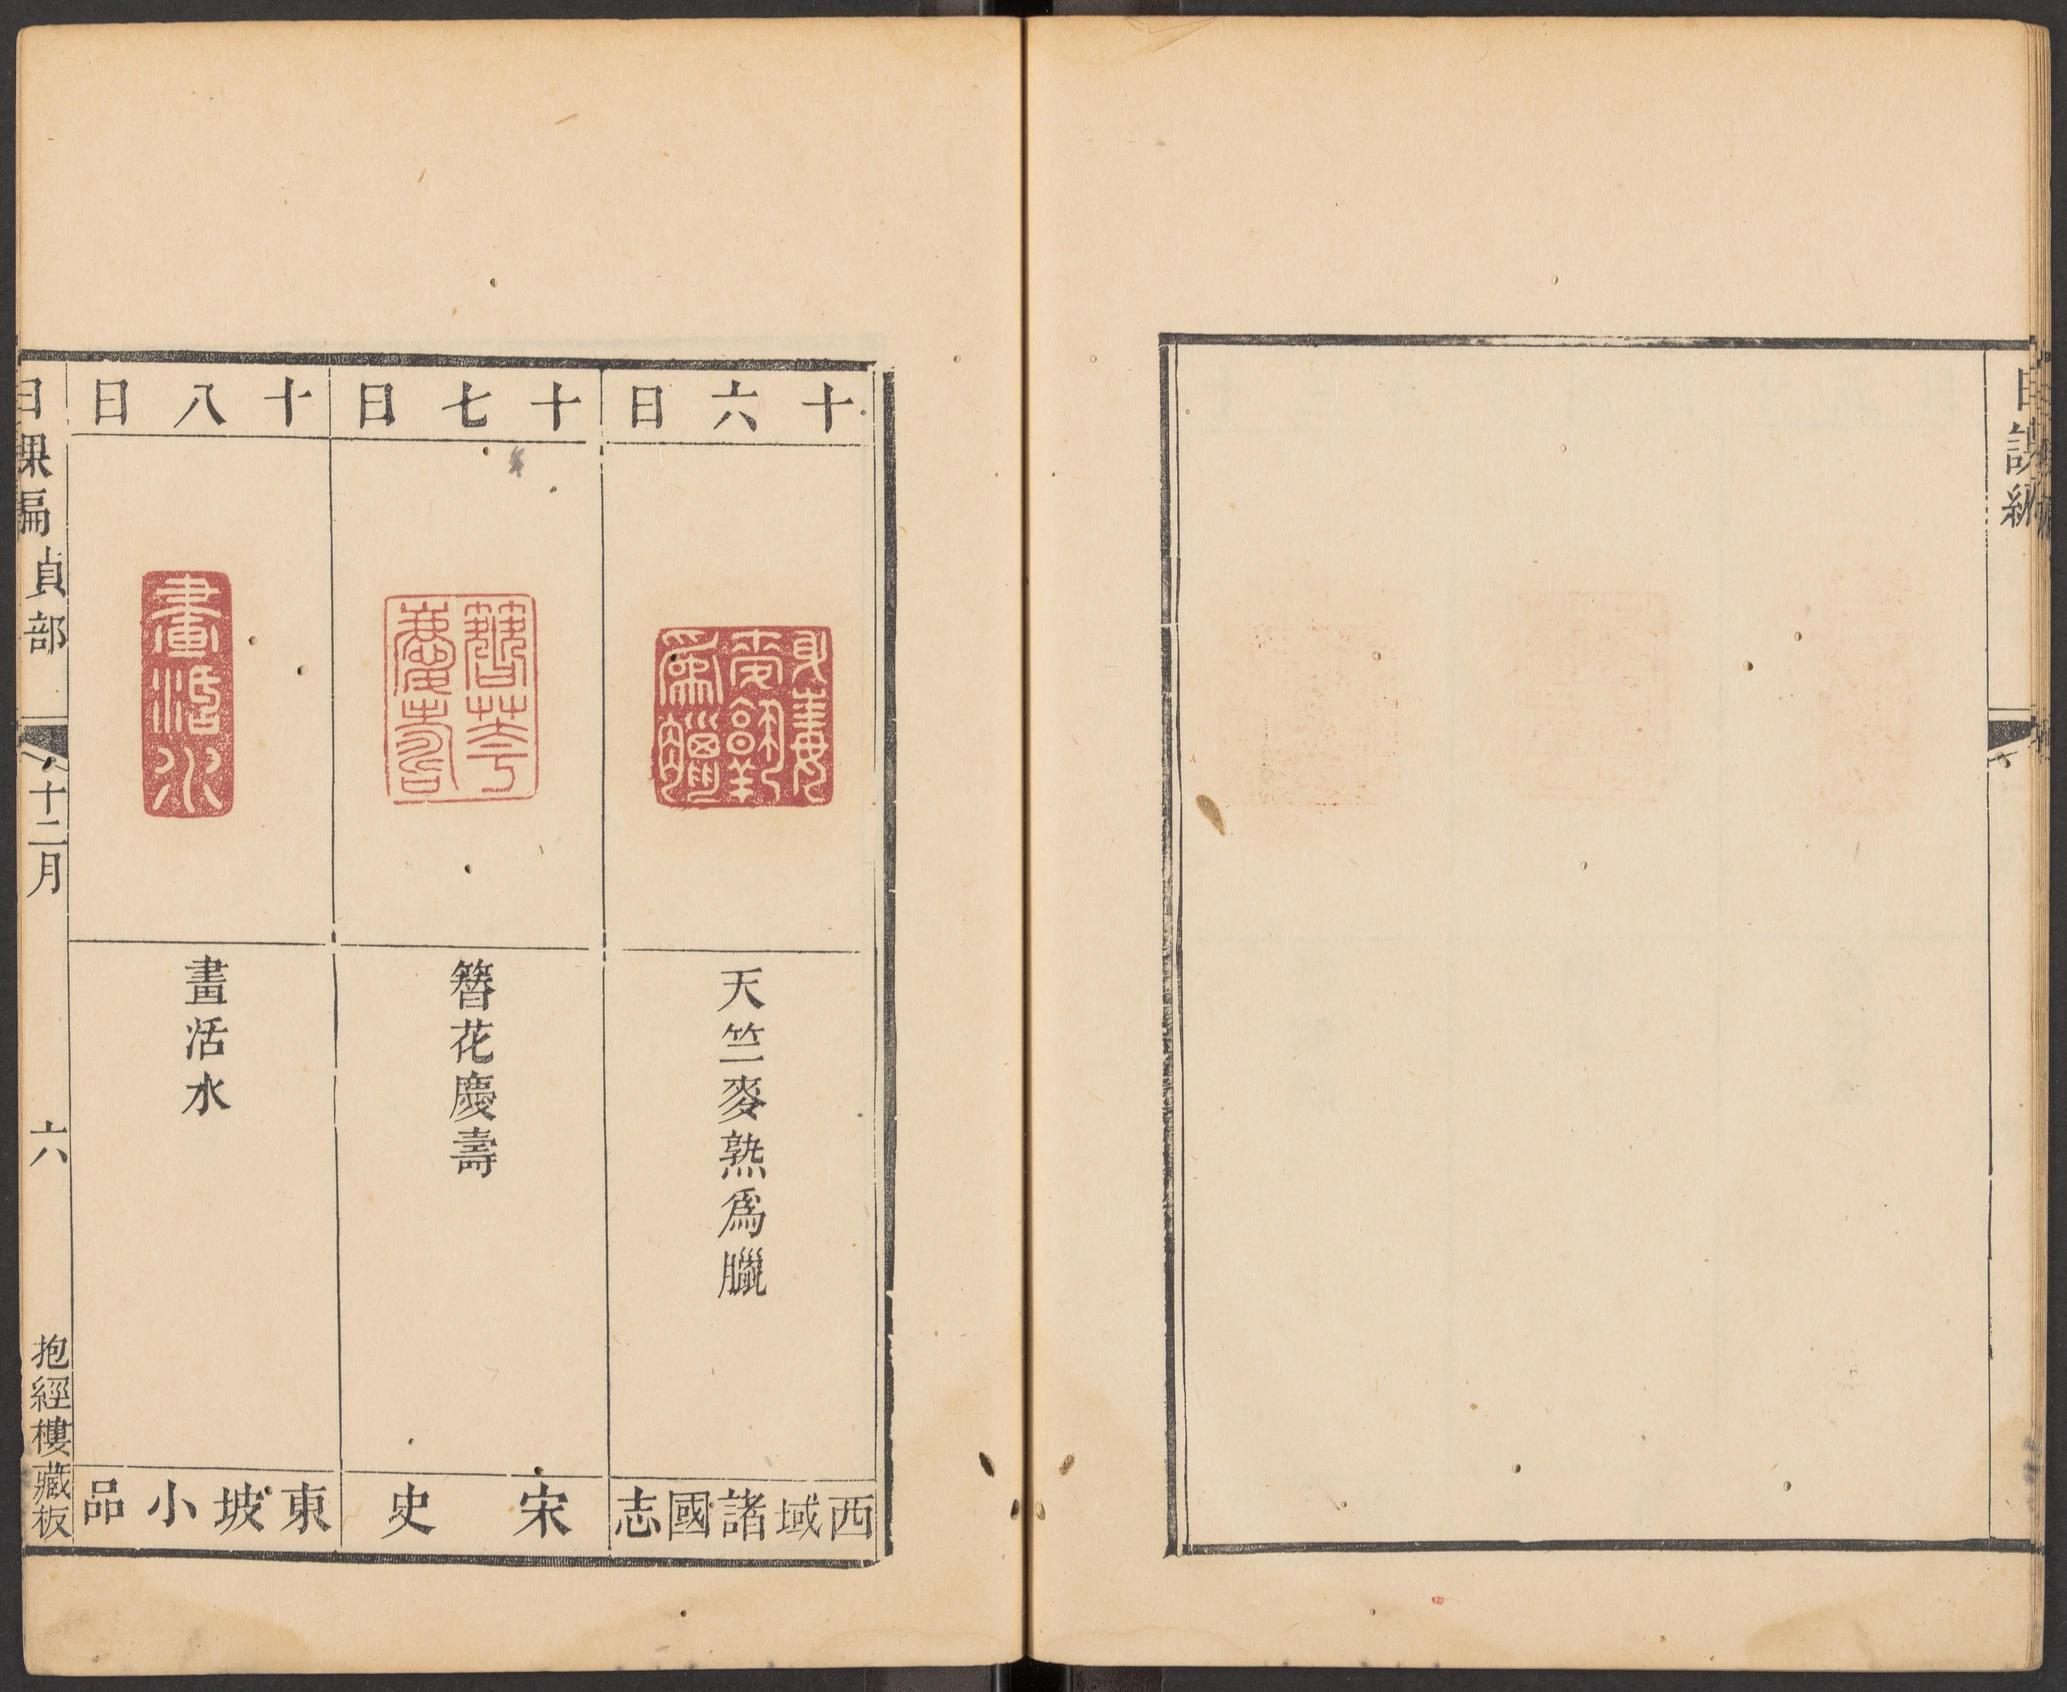 日課編
十六日
天竺麥熟爲臘
西域諸國志
十七日
簪花慶壽
簪花慶壽
宋史
十八日
畫活水
畫活水
東坡小品
日課編 貞部 十二月 六 抱經樓藏板